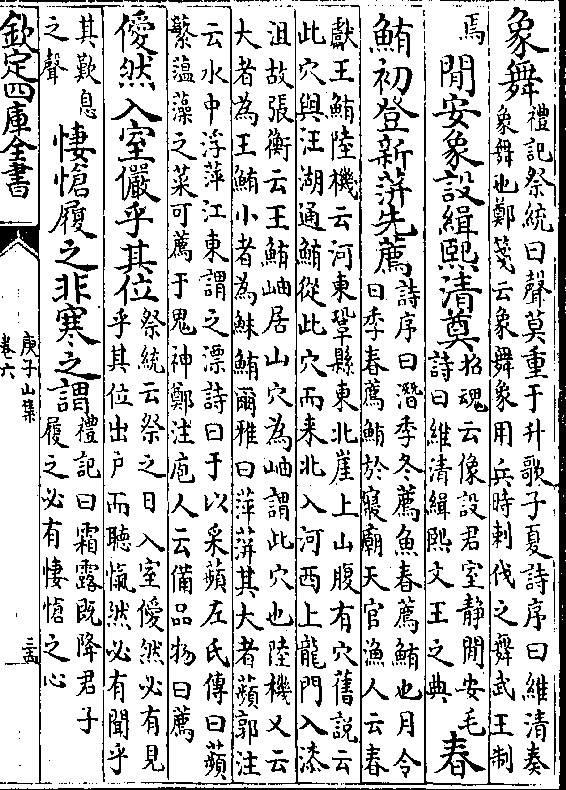 象舞
禮記祭統曰聲莫重于升歌子夏詩序曰維清奏
象舞也鄭箋云象舞象用兵時刺伐之舞武王制
焉
閒安象設緝熙清奠
招魂云像設君室静閒安毛
詩曰維清緝熙文王之典
春
鮪初登新蓱先薦
詩序曰潛季冬薦魚春薦鮪也月令
曰季春薦鮪於寢廟天官漁人云春
獻王鮪陸機云河東鞏縣東北崖上山腹有穴舊說云
此穴與江湖通鮪從此穴而来北入河西上龍門入漆
沮故張衡云王鮪岫居山穴為岫謂此穴也陸機又云
大者為王鮪小者為鮇鮪爾雅曰萍蓱其大者蘋郭注
云水中浮萍江東謂之漂詩曰于以采蘋左氏傳曰蘋
蘩薀藻之菜可薦于鬼神鄭注庖人云備品物曰薦
僾然入室儼乎其位
祭統云祭之日入室僾然必有見
乎其位出户而聽愾然必有聞乎
其歎息
之聲
悽愴履之非寒之謂
禮記曰霜露既降君子
履之必有悽愴之心
欽定四庫全書
庚子山集
卷六